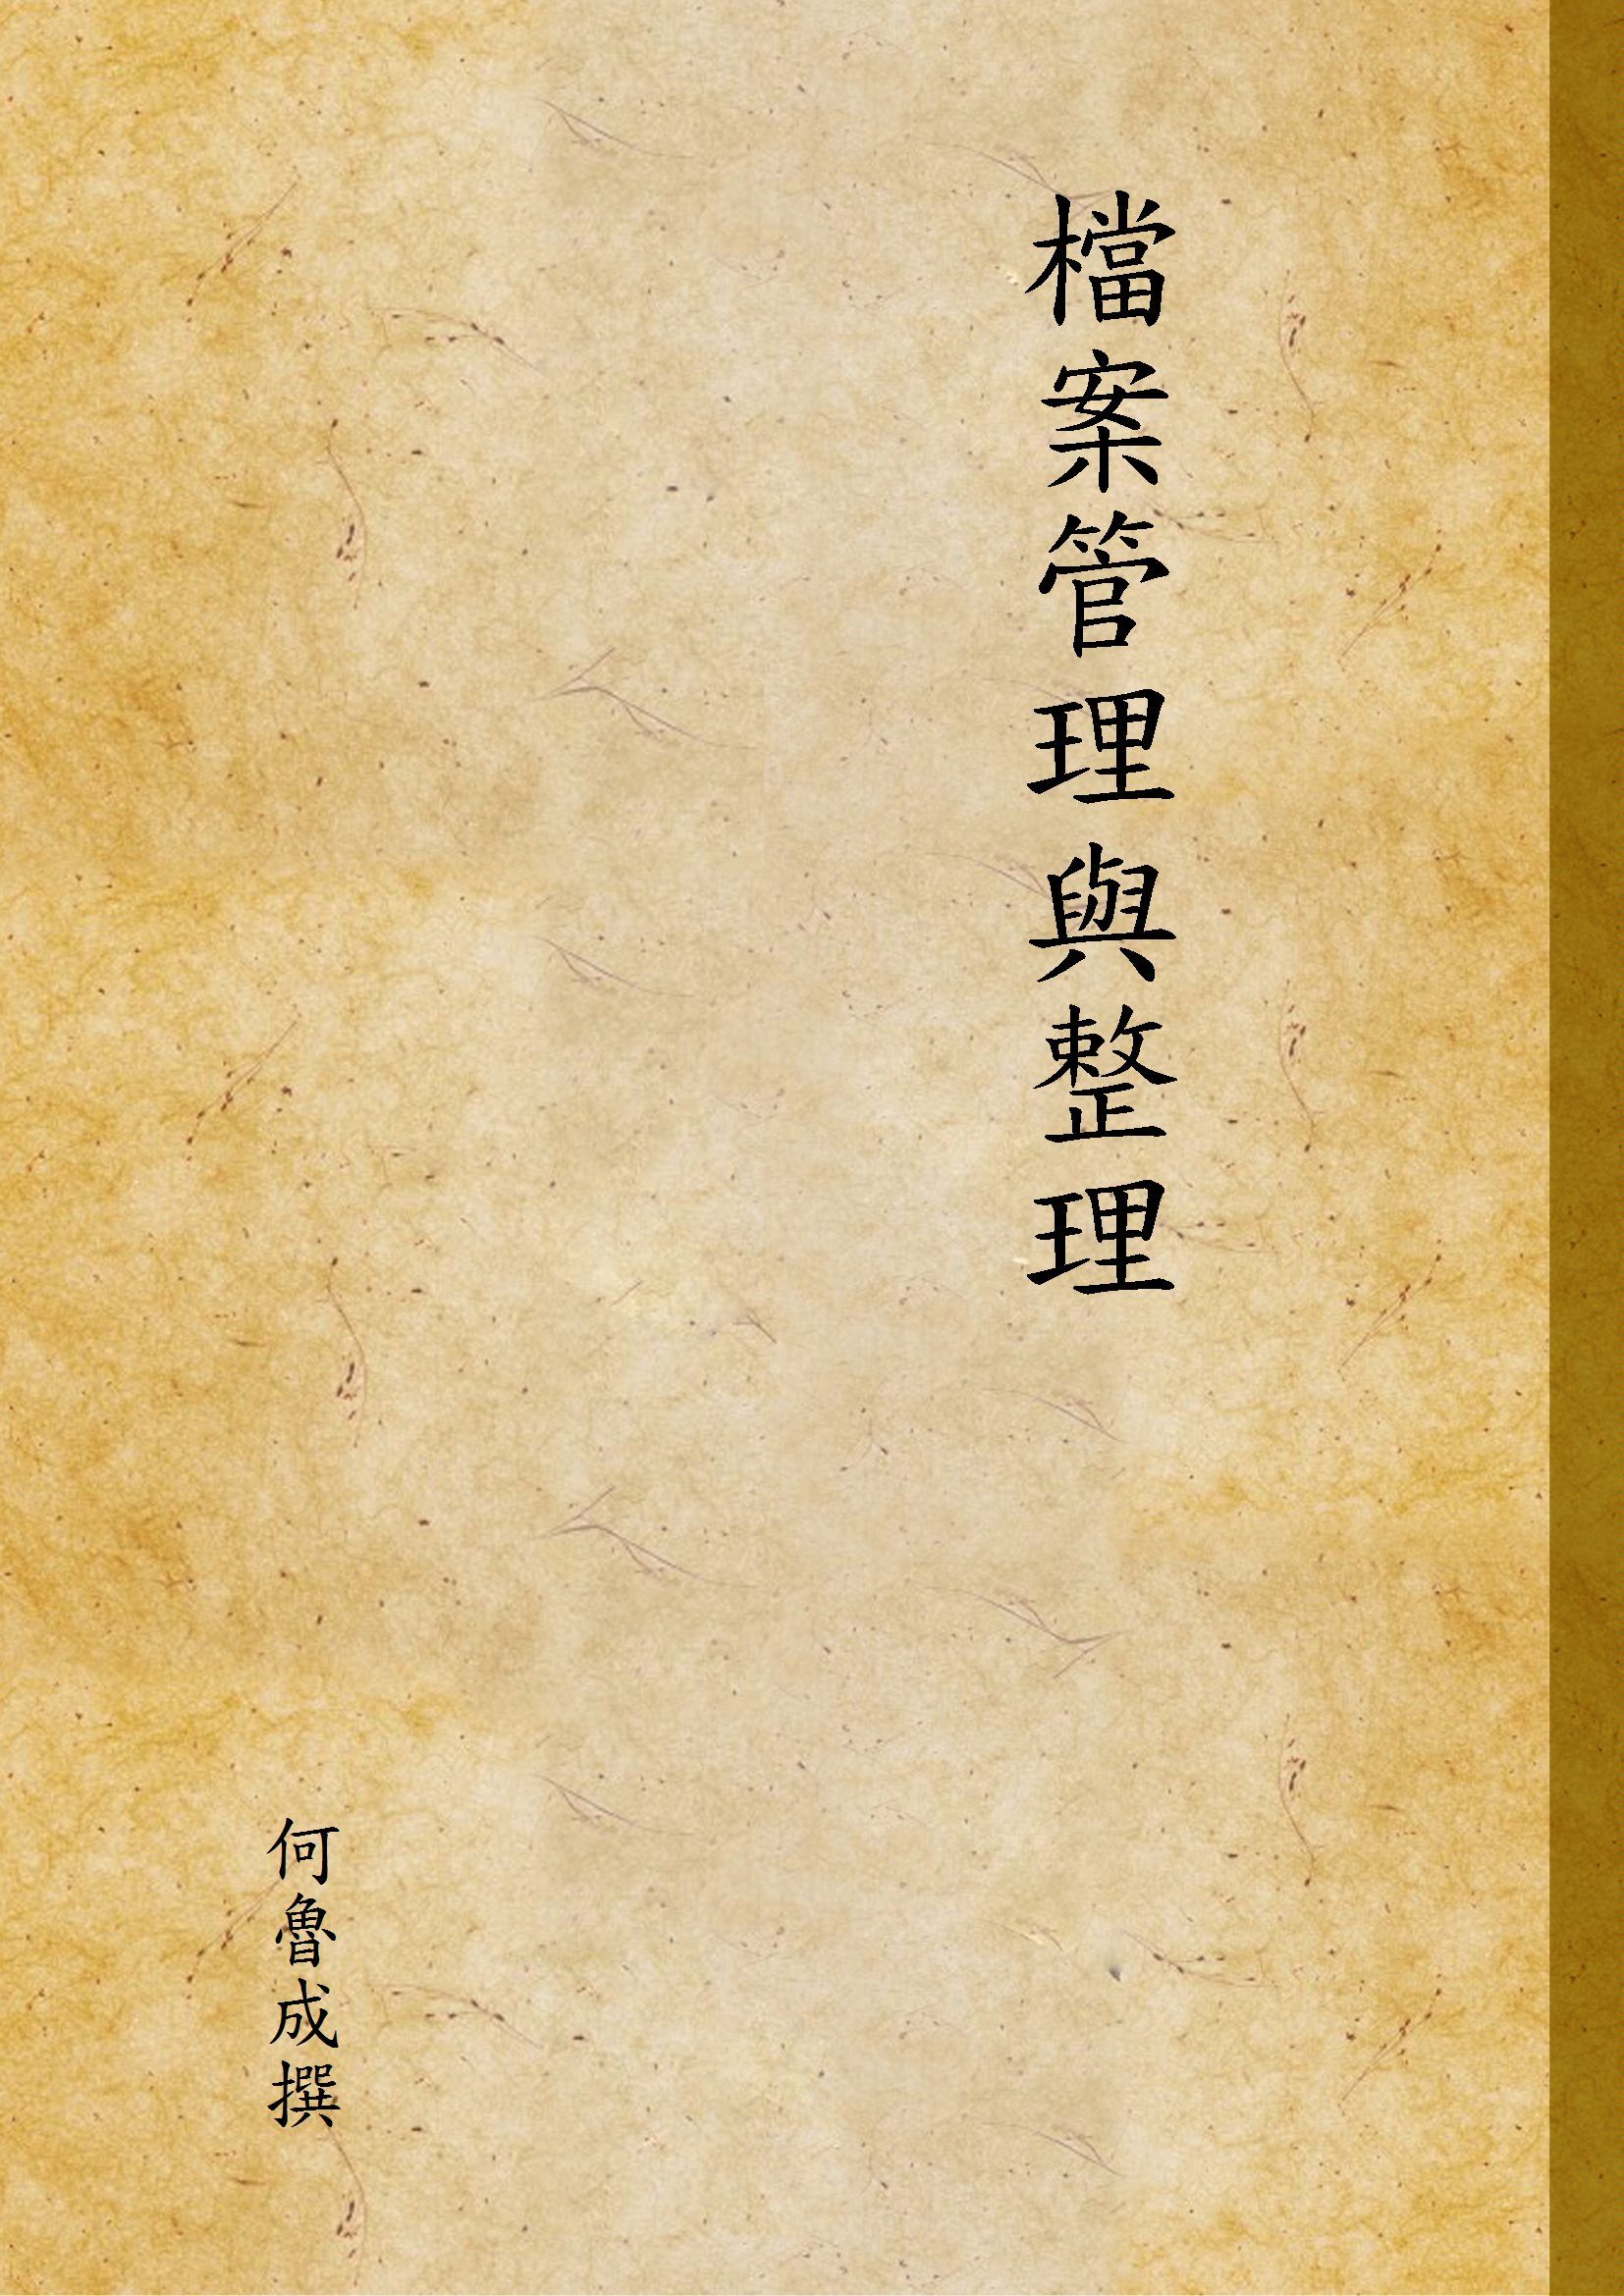 檔案管理與整理
何魯成撰